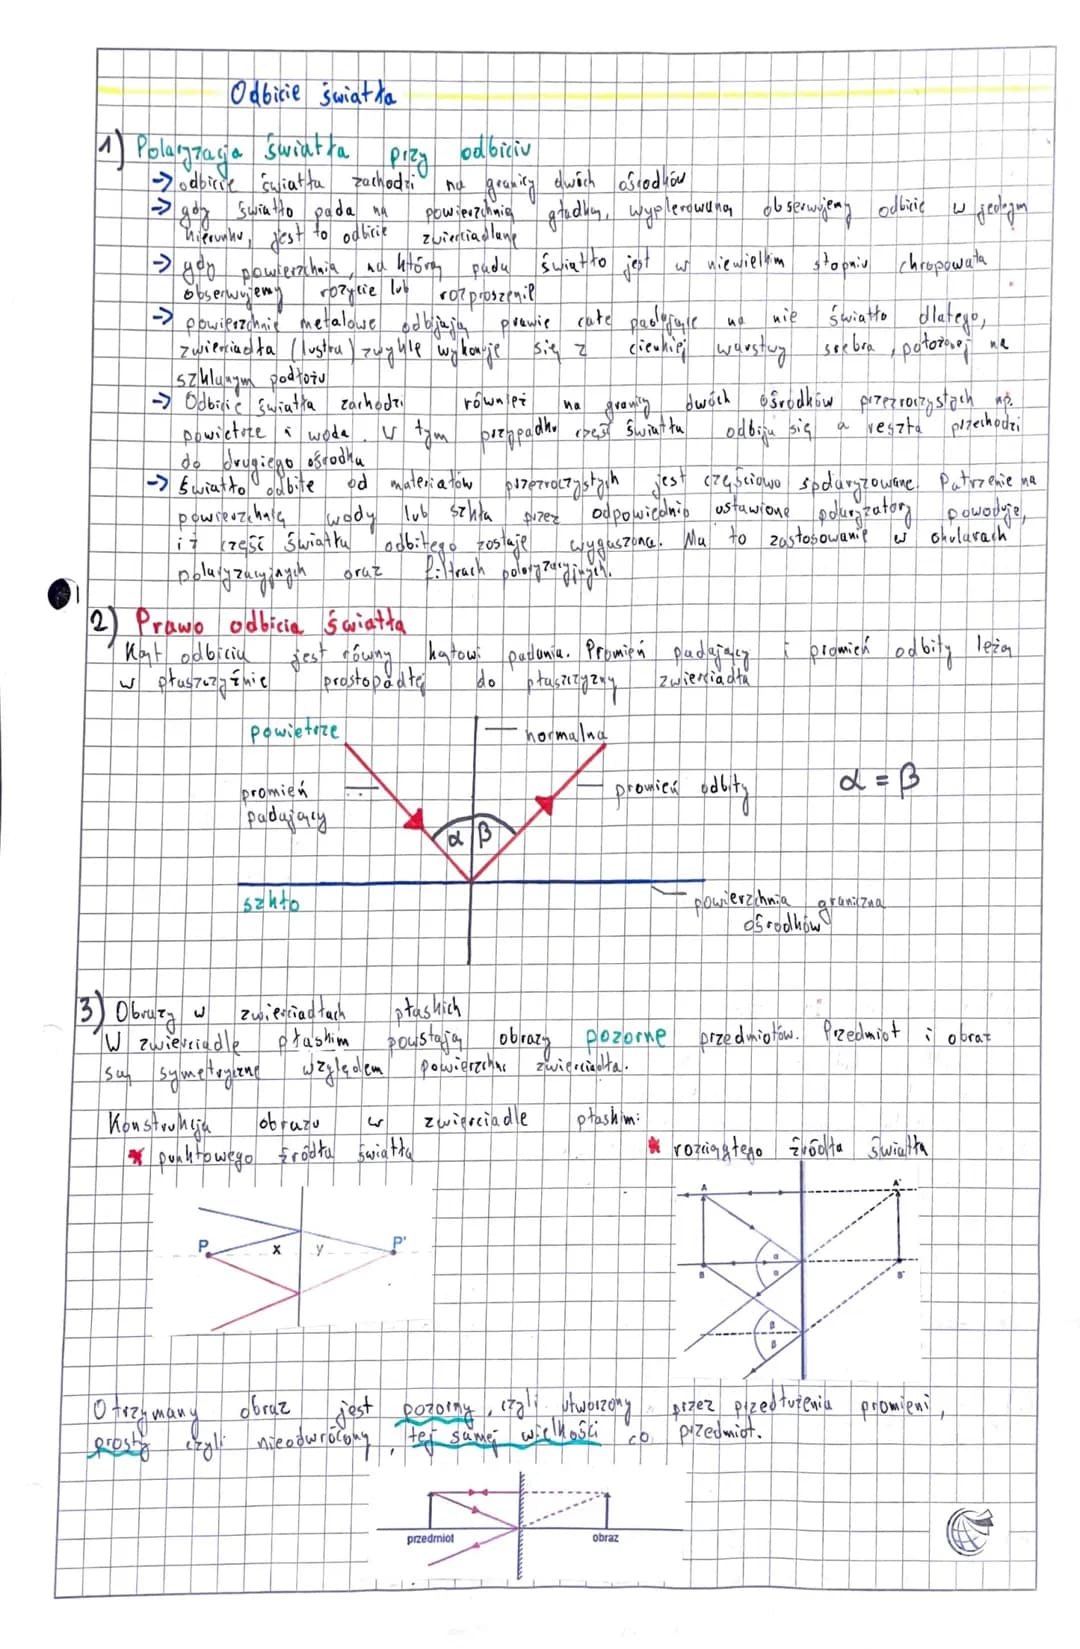 Odbicie światła
1) Polaryzacja światła przy odbiciu
→ odbicie światła zachodzi na granicy dwóch ośrodków
→ gdy światło pada na powierzchnię gładką, wypolerowaną obserwujemy odbicie w jednym
kierunku, jest to odbicie zwierciadlane
→ gdy powierzchnia, na którą pada światło jest w niewielkim stopniu chropowata
obserwujemy rozmycie lub rozproszenie
→ powierzchnie metalowe odbijają prawie całe padające na nie światło dlatego,
zwierciadła (lustra) zwykle wykonuje się z cienkiej warstwy srebra, położonej na
szklanym podłożu
→ Odbicie światła zachodzi również na granicy dwóch ośrodków przezroczystych np.
powietrze i woda. W tym przypadku część światła odbija się a reszta przechodzi
do drugiego ośrodka
→ Światło odbite od materiałów przezroczystych jest częściowo spolaryzowane. Patrzenie na
powierzchnię wody lub szkła przez odpowiednio ustawione polaryzatory powoduje,
iż część światła odbitego zostaje wygaszona. Ma to zastosowanie w okularach
polaryzacyjnych oraz filtrach polaryzacyjnych.
2) Prawo odbicia światła
Kąt odbicia jest równy kątowi padania. Promień padający i promień odbity leżą
w płaszczyźnie prostopadłej do płaszczyzny zwierciadła
powietrze normalna
promień padający promień odbity α = β
α β
szkło powierzchnia graniczna
ośrodków
3) Obrazy w zwierciadłach płaskich
W zwierciadle płaskim powstają obrazy pozorne przedmiotów. Przedmiot i obraz
są symetryczne względem powierzchni zwierciadła.
Konstrukcja obrazu w zwierciadle płaskim:
* punktowego źródła światła * rozciągłego źródła światła
A A'
P x y P'
α
α
B B'
β
β
Otrzymany obraz jest pozorny, czyli utworzony przez przedłużenia promieni,
prosty czyli nieodwrócony, tej samej wielkości co przedmiot.
przedmiot obraz